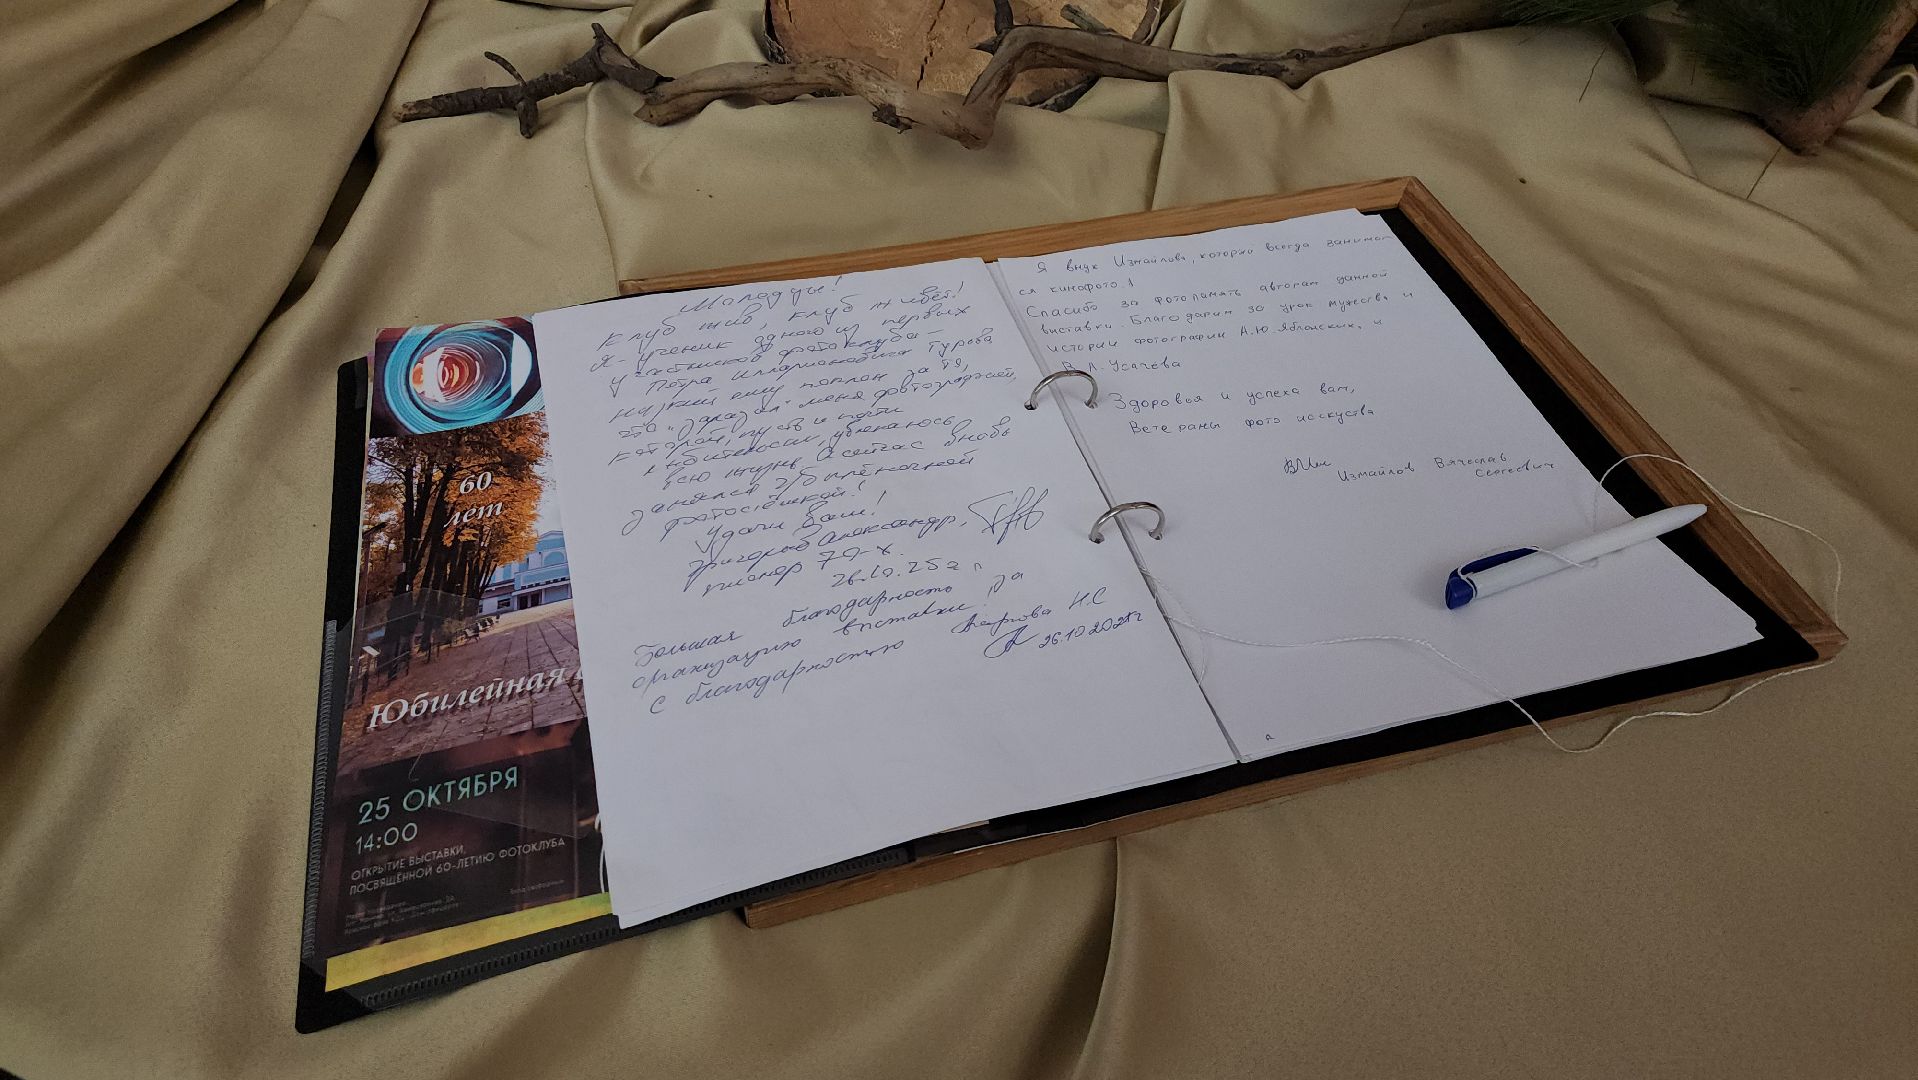 60
лет
Юбилейная
25 ОКТЯБРЯ
14:00
ОТКРЫТИЕ ВЫСТАВКИ,
ПОСВЯЩЁННОЙ 60-ЛЕТИЮ ФОТОКЛУБА
Вход свободный
Молодцы!
Клуб жив, клуб живёт!
Я - ученик одного из первых
участников фотоклуба -
Петра Илларионовича Гурова
низкий ему поклон за то,
что "заразил" меня фотографией,
которой, пусть и почти
любительски, увлекаюсь
всю жизнь. А сейчас вновь
занялся ч/б плёночной
фотосъёмкой!
Удачи Вам!
Григорьев Александр,
пионер 70-х.
26.10.25 г
Большая благодарность за
организацию выставки!
с благодарностью Н.С
26.10.2025г
Я внук Измайлова, который всегда занимал
ся кинофото.!
Спасибо за фотопамять авторам данной
выставки. Благодарим за урок мужества и
истории фотографии А.Ю. Яблонских, и
В.Л. Усачёва
Здоровья и успеха вам,
Ветераны фото исскуства
Измайлов Вячеслав
Сергеевич